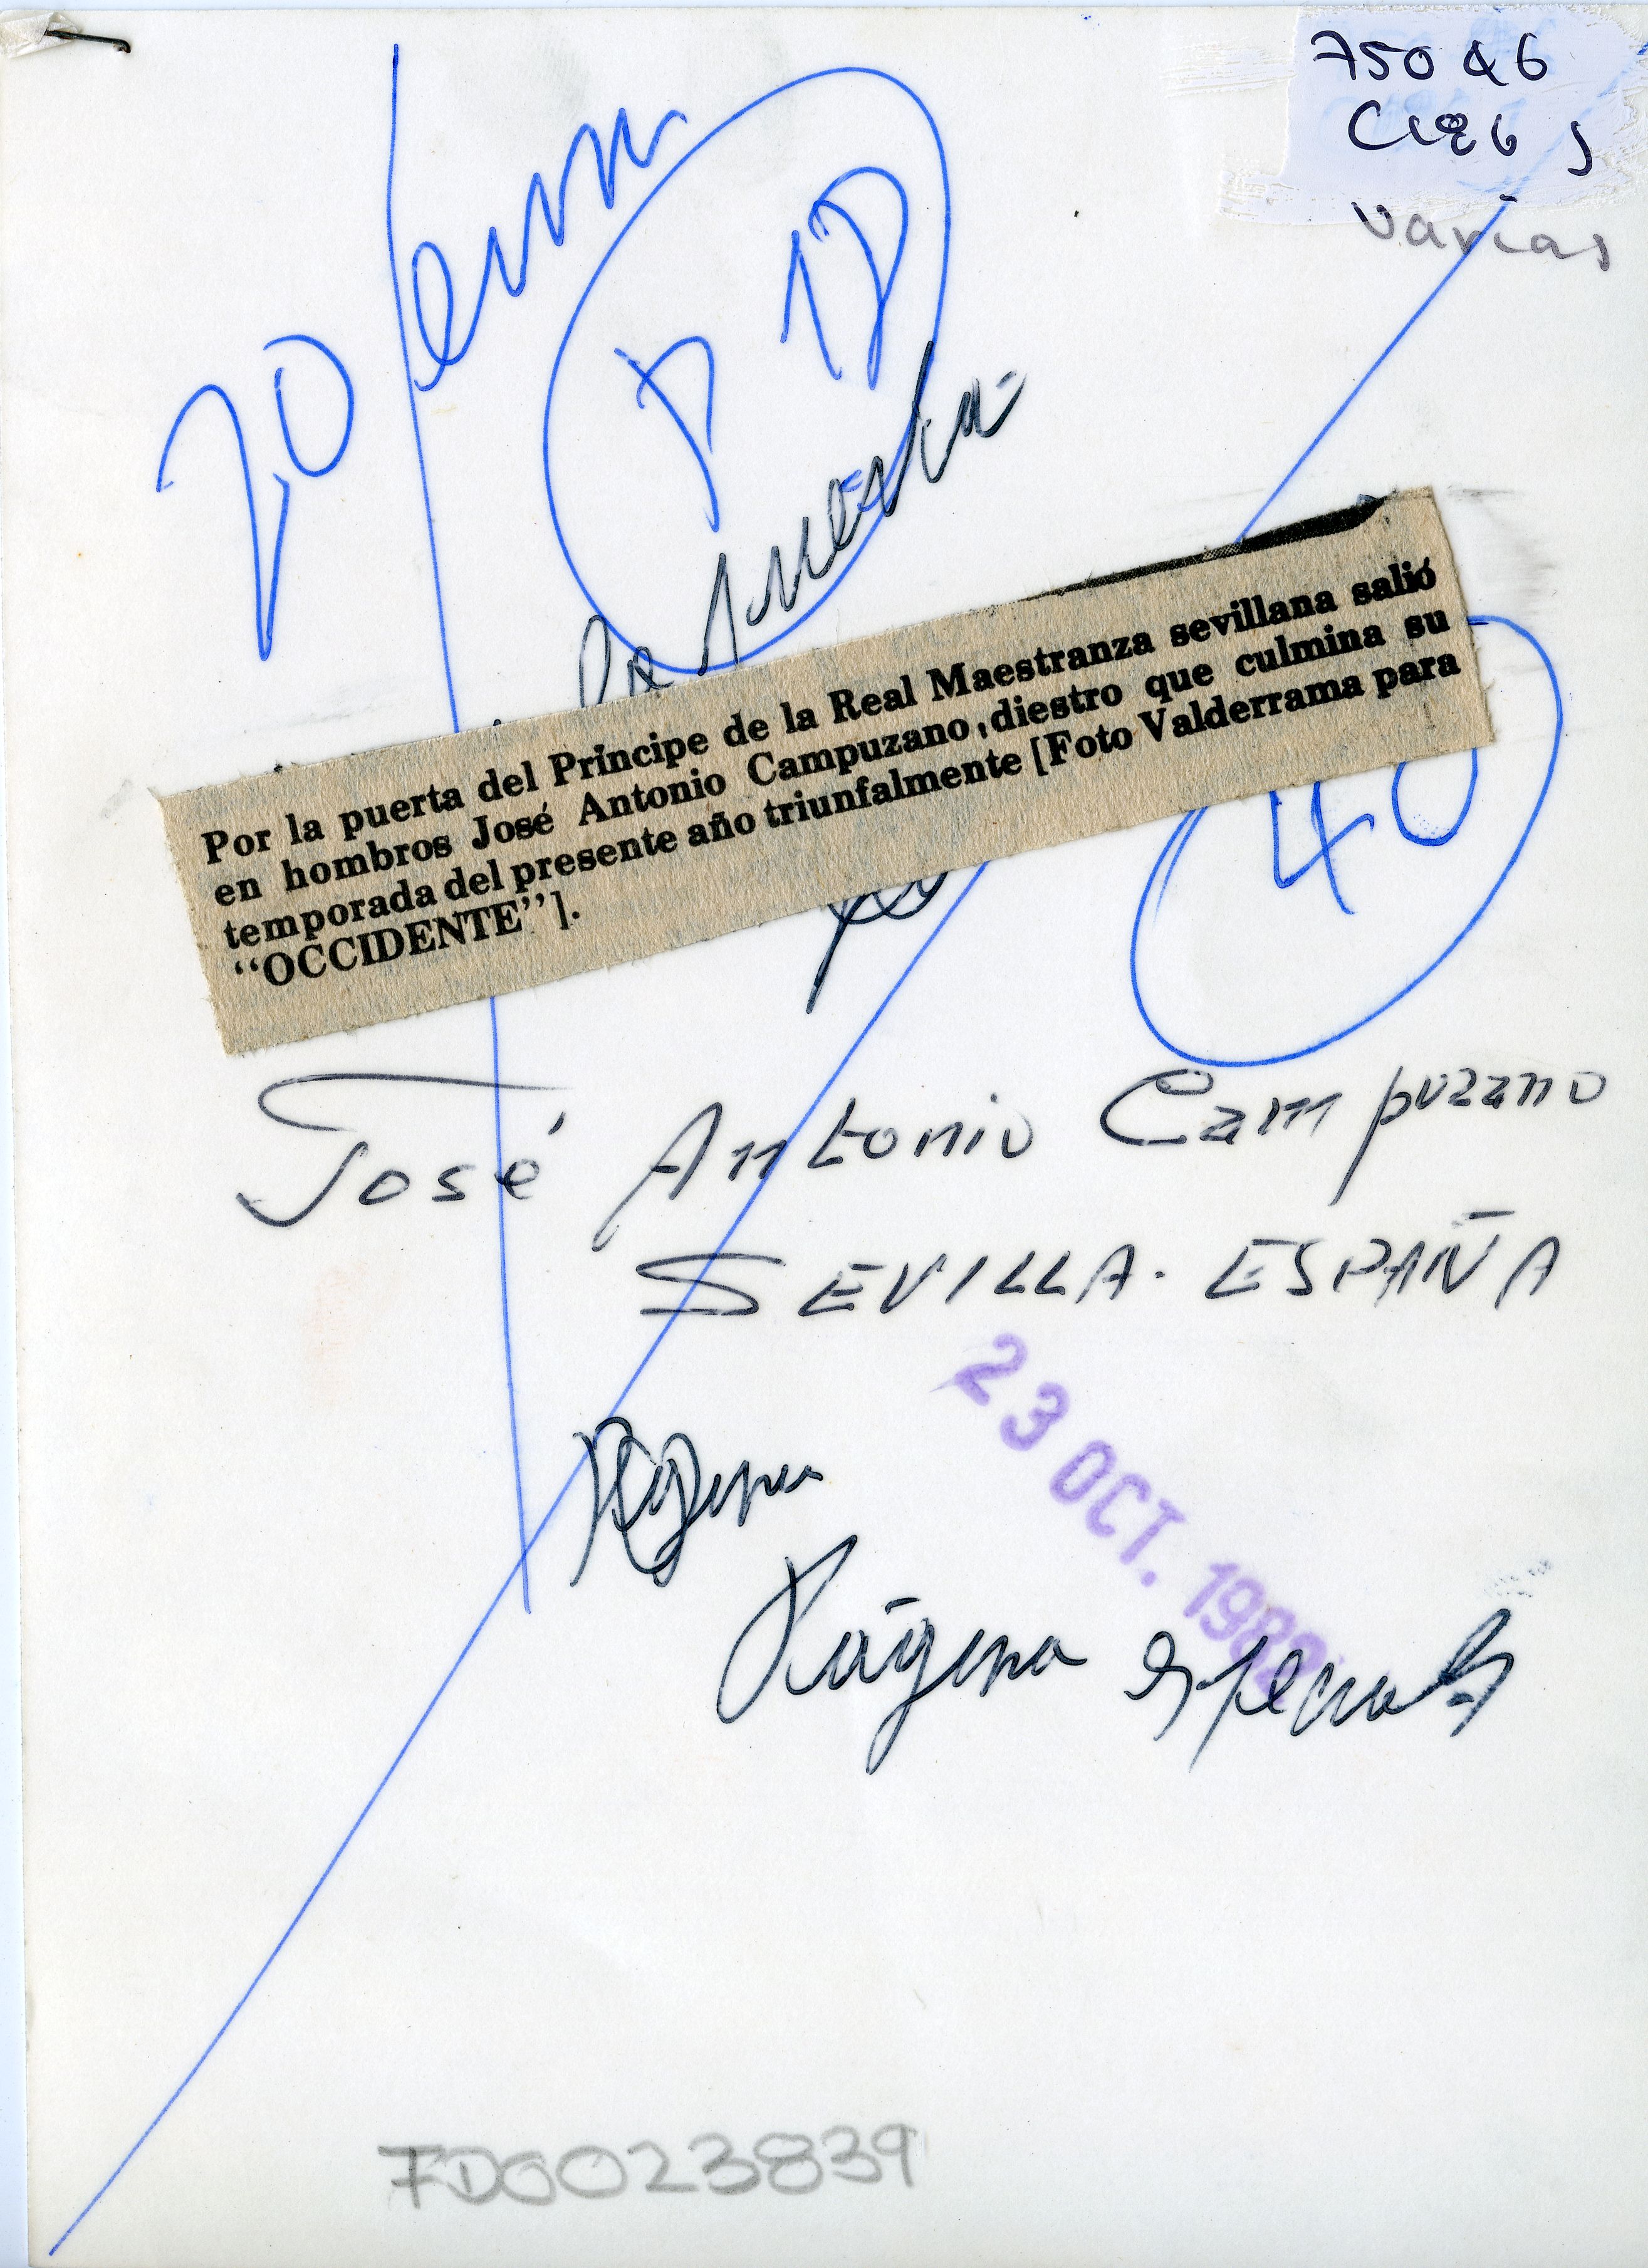 75046
varias
20
40
Por la puerta del Príncipe de la Real Maestranza sevillana salió
en hombros José Antonio Campuzano, diestro que culmina su
temporada del presente año triunfalmente [Foto Valderrama para
“OCCIDENTE”].
José Antonio Campuzano
SEVILLA. ESPAÑA
23 OCT. 1982
Página
FD0023839